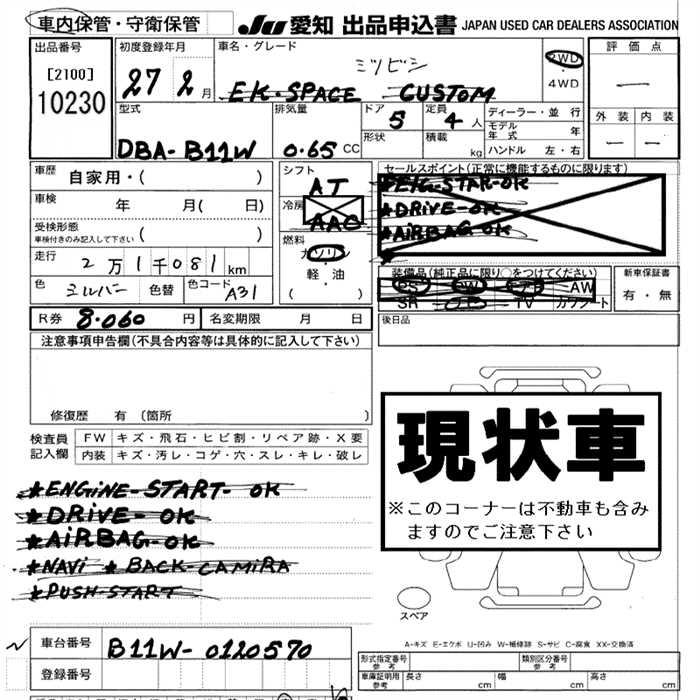 車内保管・守衛保管
JU 愛知 出品申込書 JAPAN USED CAR DEALERS ASSOCIATION
出品番号
[2100]
10230
初度登録年月
27 2月
車名・グレード
ミツビシ
EK-SPACE CUSTOM
2WD
・
4WD
評価点
—
外装 内装
— —
型式
DBA-B11W
排気量
0.65 CC
ドア
5
形状
定員
4人
積載
kg
ディーラー・並行
モデル年式 年
ハンドル 左・右
車歴
自家用・( )
車検
年 月( 日)
受検形態
車検付きのみ記入して下さい ( )
走行
2万1千081km
色
シルバー
色替
色コード
A31
シフト
AT
冷房
AAC
燃料
ガソリン
・
軽・油
( )
セールスポイント(正常に機能するものに限ります)
*EK-STAR-OK
*DRIVE-OK
*AIRBAG-OK
*
装備品(純正品に限り○をつけてください)
PS PW エアB AW
SR TV カワシート
新車保証書
有・無
R券 8.060 円
名変期限 月 日
後日品
注意事項申告欄(不具合内容等は具体的に記入して下さい)
修復歴 有(箇所 )
検査員記入欄
FW キズ・飛石・ヒビ割・リペア跡・X要
内装 キズ・汚レ・コゲ・穴・スレ・キレ・破レ
*ENGINE-START-OK
*DRIVE-OK
*AIRBAG-OK
*NAVI *BACK-CAMIRA
*PUSH-START
現状車
※このコーナーは不動車も含みますのでご注意下さい
スペア
A-キズ E-エクボ U-凹み W-補修跡 S-サビ C-腐食 XX-交換済
車台番号
B11W-0120570
登録番号
形式指定番号
参考
類別区分番号
参考
車庫証明用
参考
長さ cm
幅 cm
高さ cm